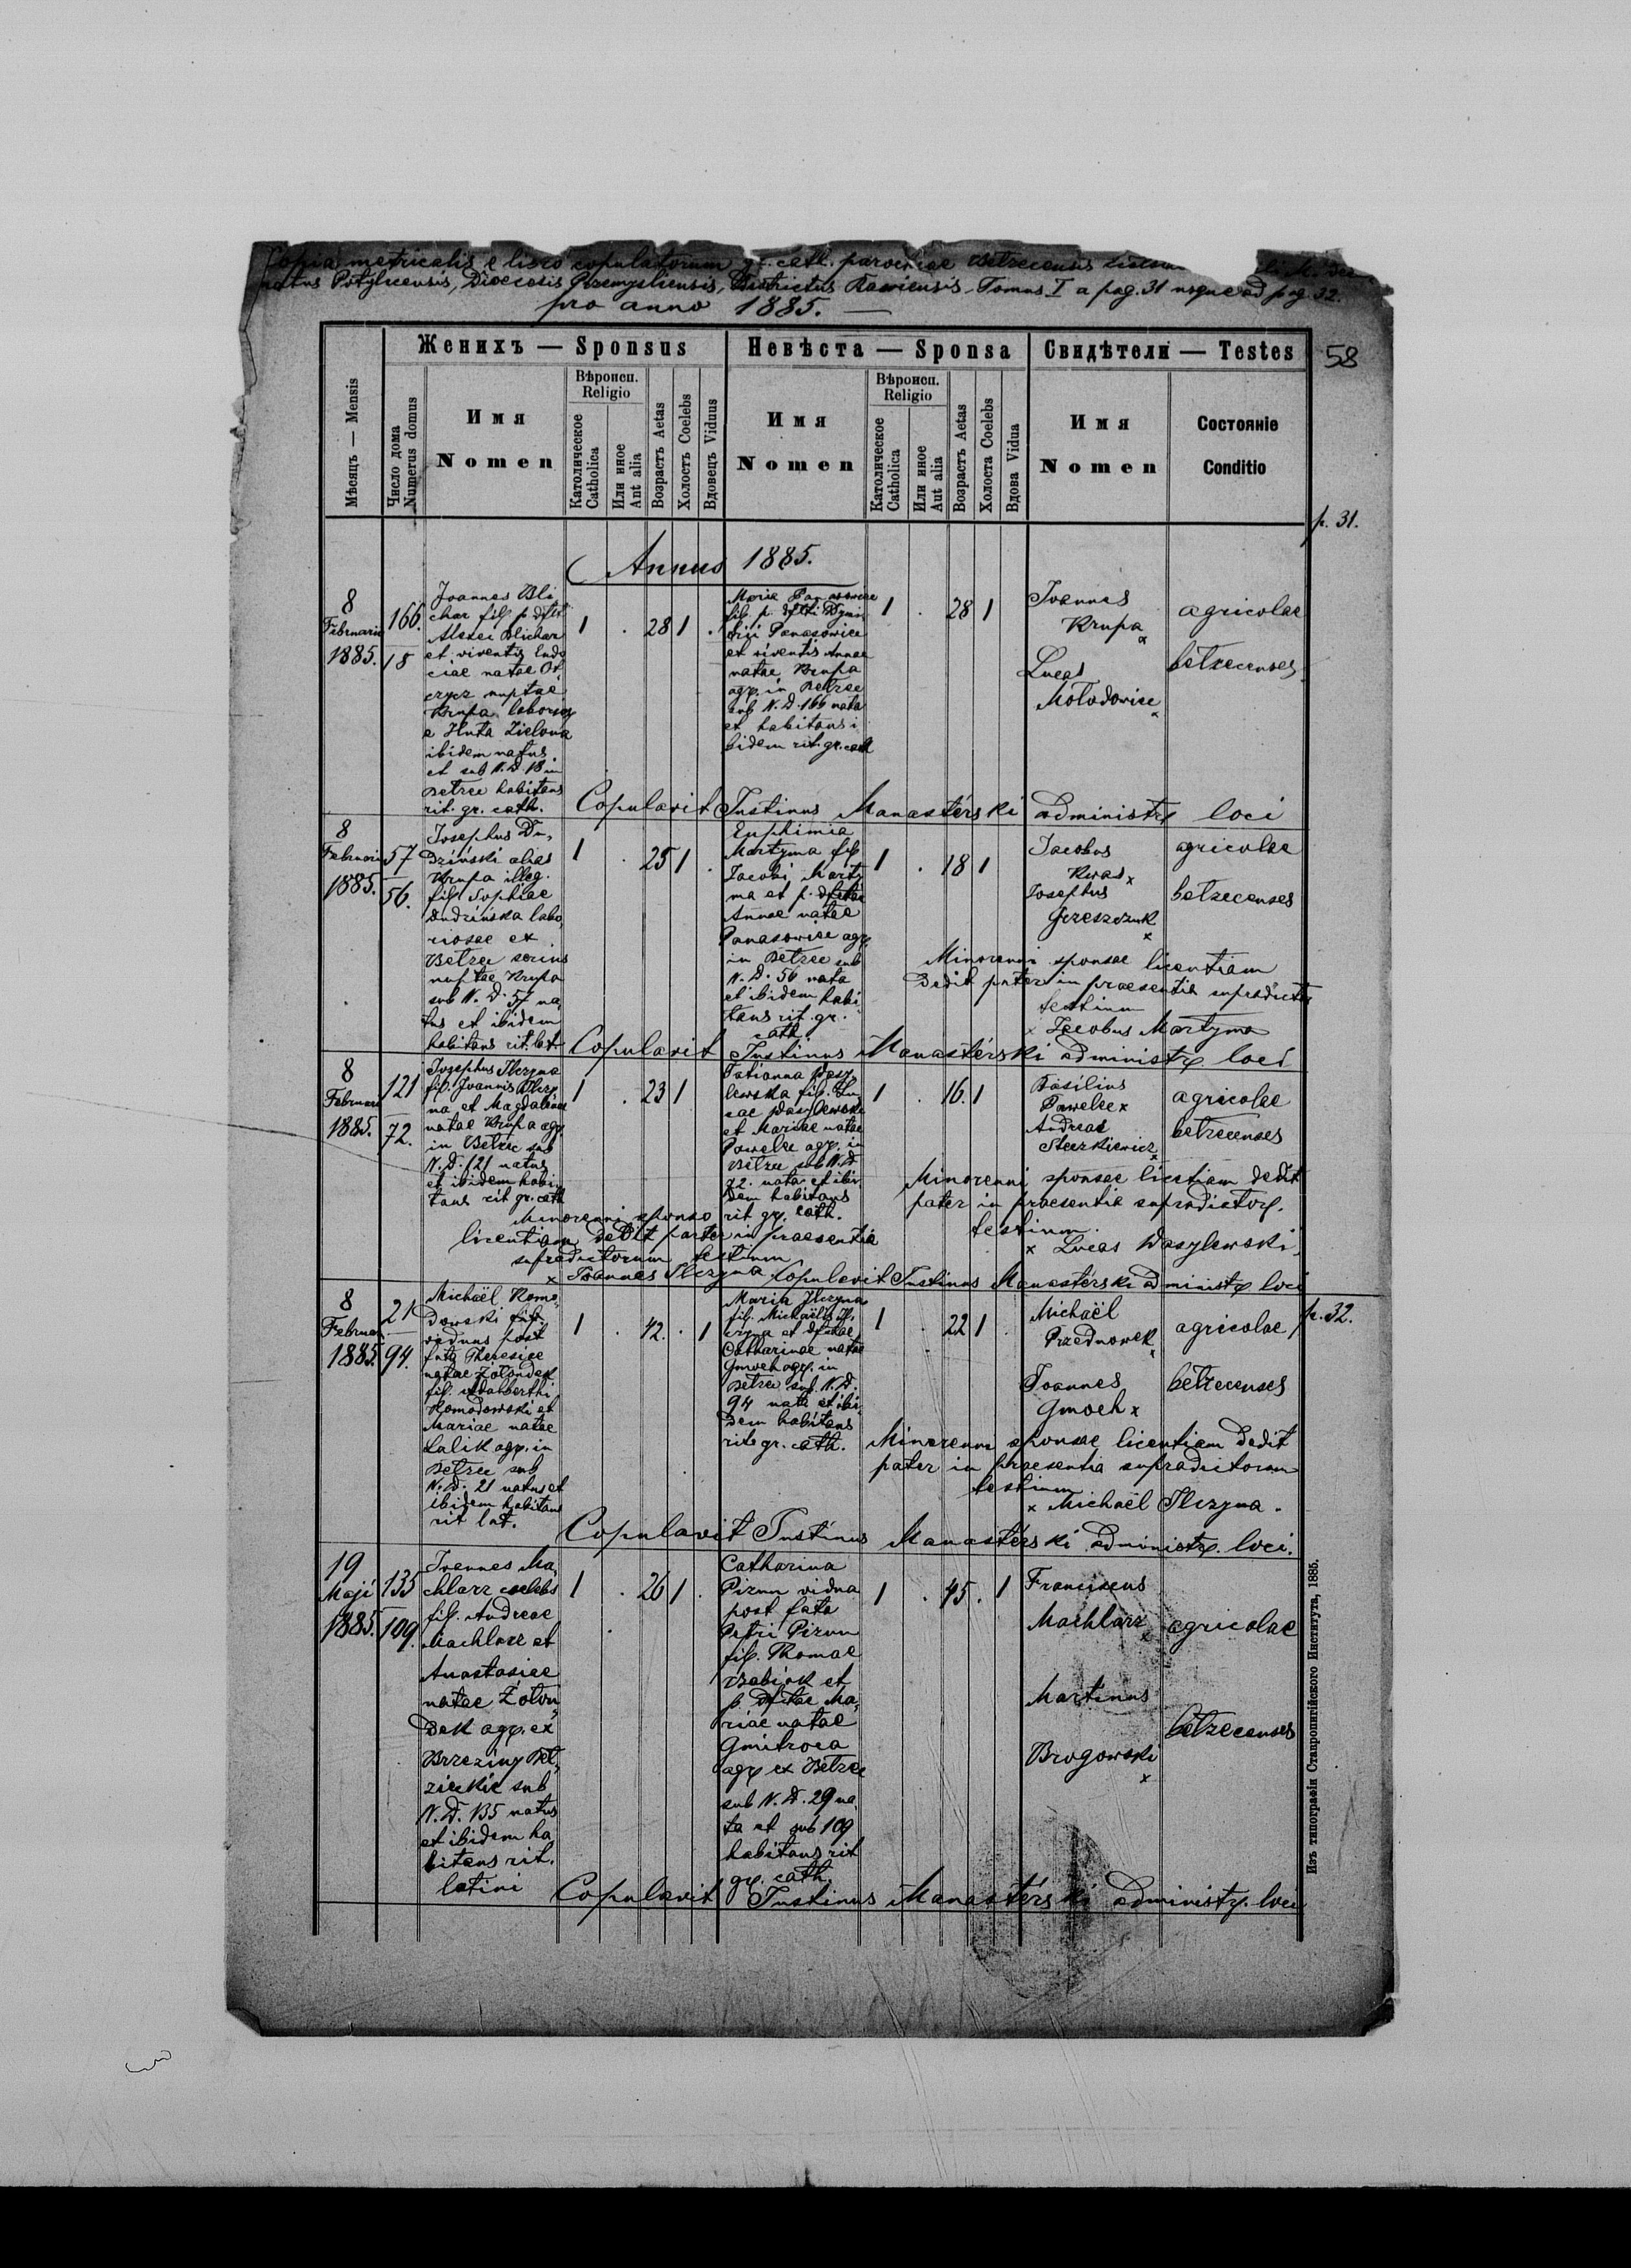 Copia metricalis e libro copulatorum gr. cath. parochiae Bełzecensis
natus Potyliczensis, Dioecesis Przemysliensis, Districtus Rawiensis, Tomus I a pag. 31 usque ad pag. 32.
pro anno 1885. —
58
Женихъ — Sponsus
Невѣста — Sponsa
Свидѣтели — Testes
Мѣсяцъ — Mensis
Число дома
Numerus domus
Имя
Nomen
Вѣроисп.
Religio
Католическое
Catholica
Или иное
Aut alia
Возрастъ Aetas
Холостъ Coelebs
Вдовецъ Viduus
Имя
Nomen
Вѣроисп.
Religio
Католическое
Catholica
Или иное
Aut alia
Возрастъ Aetas
Холоста Coelebs
Вдова Vidua
Имя
Nomen
Состояніе
Conditio
p. 31.
Annus 1885.
8
Februarii
1885.
166.
18
Joannes Bli,
char fil. p. dfti
Alexei Blichar
et viventis Eudo
ciae natae
nuptae
Krupa laborios
e Huta Zielona
ibidem natus
et sub N. D. 18 in
Bełzec habitans
rit. gr. cath.
1 . 28 1 .
Maria Panasowice
fil. p. dfti Dymi
trii Panasowice
et viventis Annae
natae Krupa
agr. in Bełzec
sub N. D. 166 nata
et habitans i
bidem rit. gr. cath
1 . 28 1
Joannes
Krupa x
Lucas
Mołodowice x
agricolae
bełzecenses
Copulavit Justinus Manastérski administr loci
8
Februarii
1885.
57
56.
Josephus Du,
dziński alias
Krupa illeg.
fil. Sophiae
Dudzińska labo,
riosae ex
Bełzec serius
nuptae Krupa
sub N. D. 57 na,
tus et ibidem
habitans rit. lat.
1 . 25 1 .
Euphimia
Martyma fil.
Jacobi Marty
ma et p. dftae
Annae natae
Panasowice agr.
in Bełzec sub
N. D. 56 nata
et ibidem habi,
tans rit. gr.
cath.
1 . 18 1
Jacobus
Kwas x
Josephus
Greszczuk
x
agricolae
bełzecenses
Minorenni sponsae licentiam
dedit pater in praesentia supradictor
testium
x Jacobus Martyma
Copulavit Justinus Manastérski administr. loci
8
Februarii
1885.
121
72.
Josephus Ilczyna
fil. Joannis Ilczy
na et Magdalenae
natae Krupa agr.
in Bełzec sub
N. D. 121 natus
et ibidem habi,
tans rit gr. cath
1 . 23 1
Tatianna Wasy
lewska fil. Lu
cae Wasylewski
et Mariae natae
Pawelec agr. in
Bełzec sub N. D.
72. nata et ibi
dem habitans
rit gr. cath.
1 . 16. 1
Basilius
Pawelec x
Andreas
Steczkiewicz x
agricolae
bełzecenses
Minorenni sponsae licentiam dedit
pater in praesentia supradictor.
testium.
x Lucas Wasylewski.
Minorenni sponso
licentiam dedit pater in praesentia
supradictorum testium
x Joannes Ilczyna Copulavit Justinus Manastérski administr loci
8
Februar
1885.
21
94.
Michaël Komo,
dowski
viduus post
fata Theresiae
natae Żołondek
fil. Adalberthi
Komodowski et
Mariae natae
Lalik agr. in
Bełzec sub
N. D. 21 natus et
ibidem habitans
rit lat.
1 . 42. . 1
Maria Ilczyna
fil. Michaëlis Il,
czyna et dftae
Catharinae natae
Gmoch agr. in
Bełzec sub N. D.
94 nata et ibi,
dem habitans
rit gr. cath.
1 . 22 1
Michaël
Przednowek x
Joannes
Gmoch x
agricolae
bełzecenses
p. 32.
Minorenni sponsae licentiam dedit
pater in praesentia supradictorum
testium
x Michaël Ilczyna.
Copulavit Justinus Manastérski administr. loci.
19
Maji
1885.
135
109.
Joannes Ma,
chlarz caelebs
fil. Andreae
Machlarz et
Anastasiae
natae Żołon,
dek agr. ex
Brzeziny Beł,
zieckie sub
N. D. 135 natus
et ibidem ha,
bitans rit.
latini
1 . 26 1 .
Catharina
Pizun vidua
post fata
Petri Pizun
fil. Thomae
Babiak et
p. dftae Ma,
riae natae
Gmitroca
agr ex Bełzec
sub N. D. 29 na,
ta et sub 109
habitans rit
gr. cath.
1 . 45 . 1
Franciscus
Machlarz x
Martinus
Brogowski
x
agricolae
bełzecenses
Copulavit Justinus Manastérski administr. loci
Изъ типографіи Ставропигійского Института, 1885.